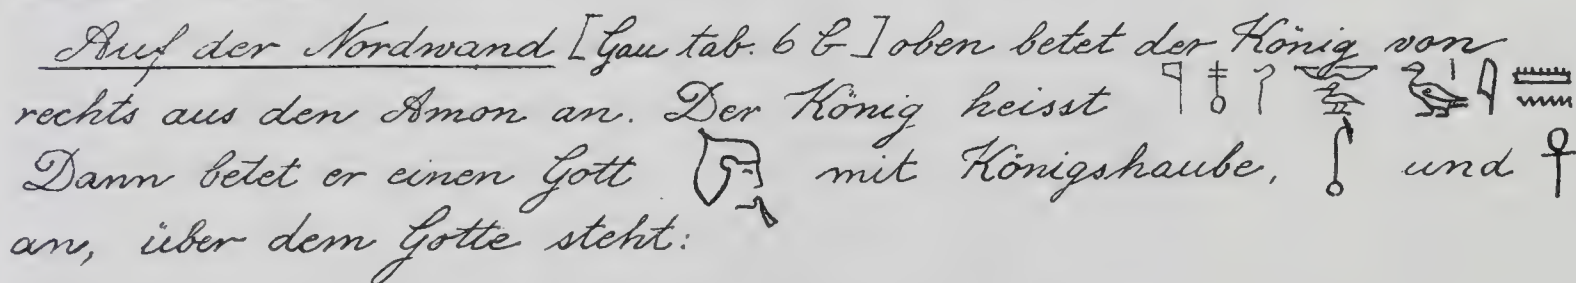 Auf der Nordwand [Gau tab. 6 b] oben betet der König von
rechts aus den Amon an. Der König heisst 𓊹𓄤𓋾 𓅭𓏤𓇋𓏠𓈖
Dann betet er einen Gott mit Königshaube, und 𓋹
an, über dem Gotte steht: